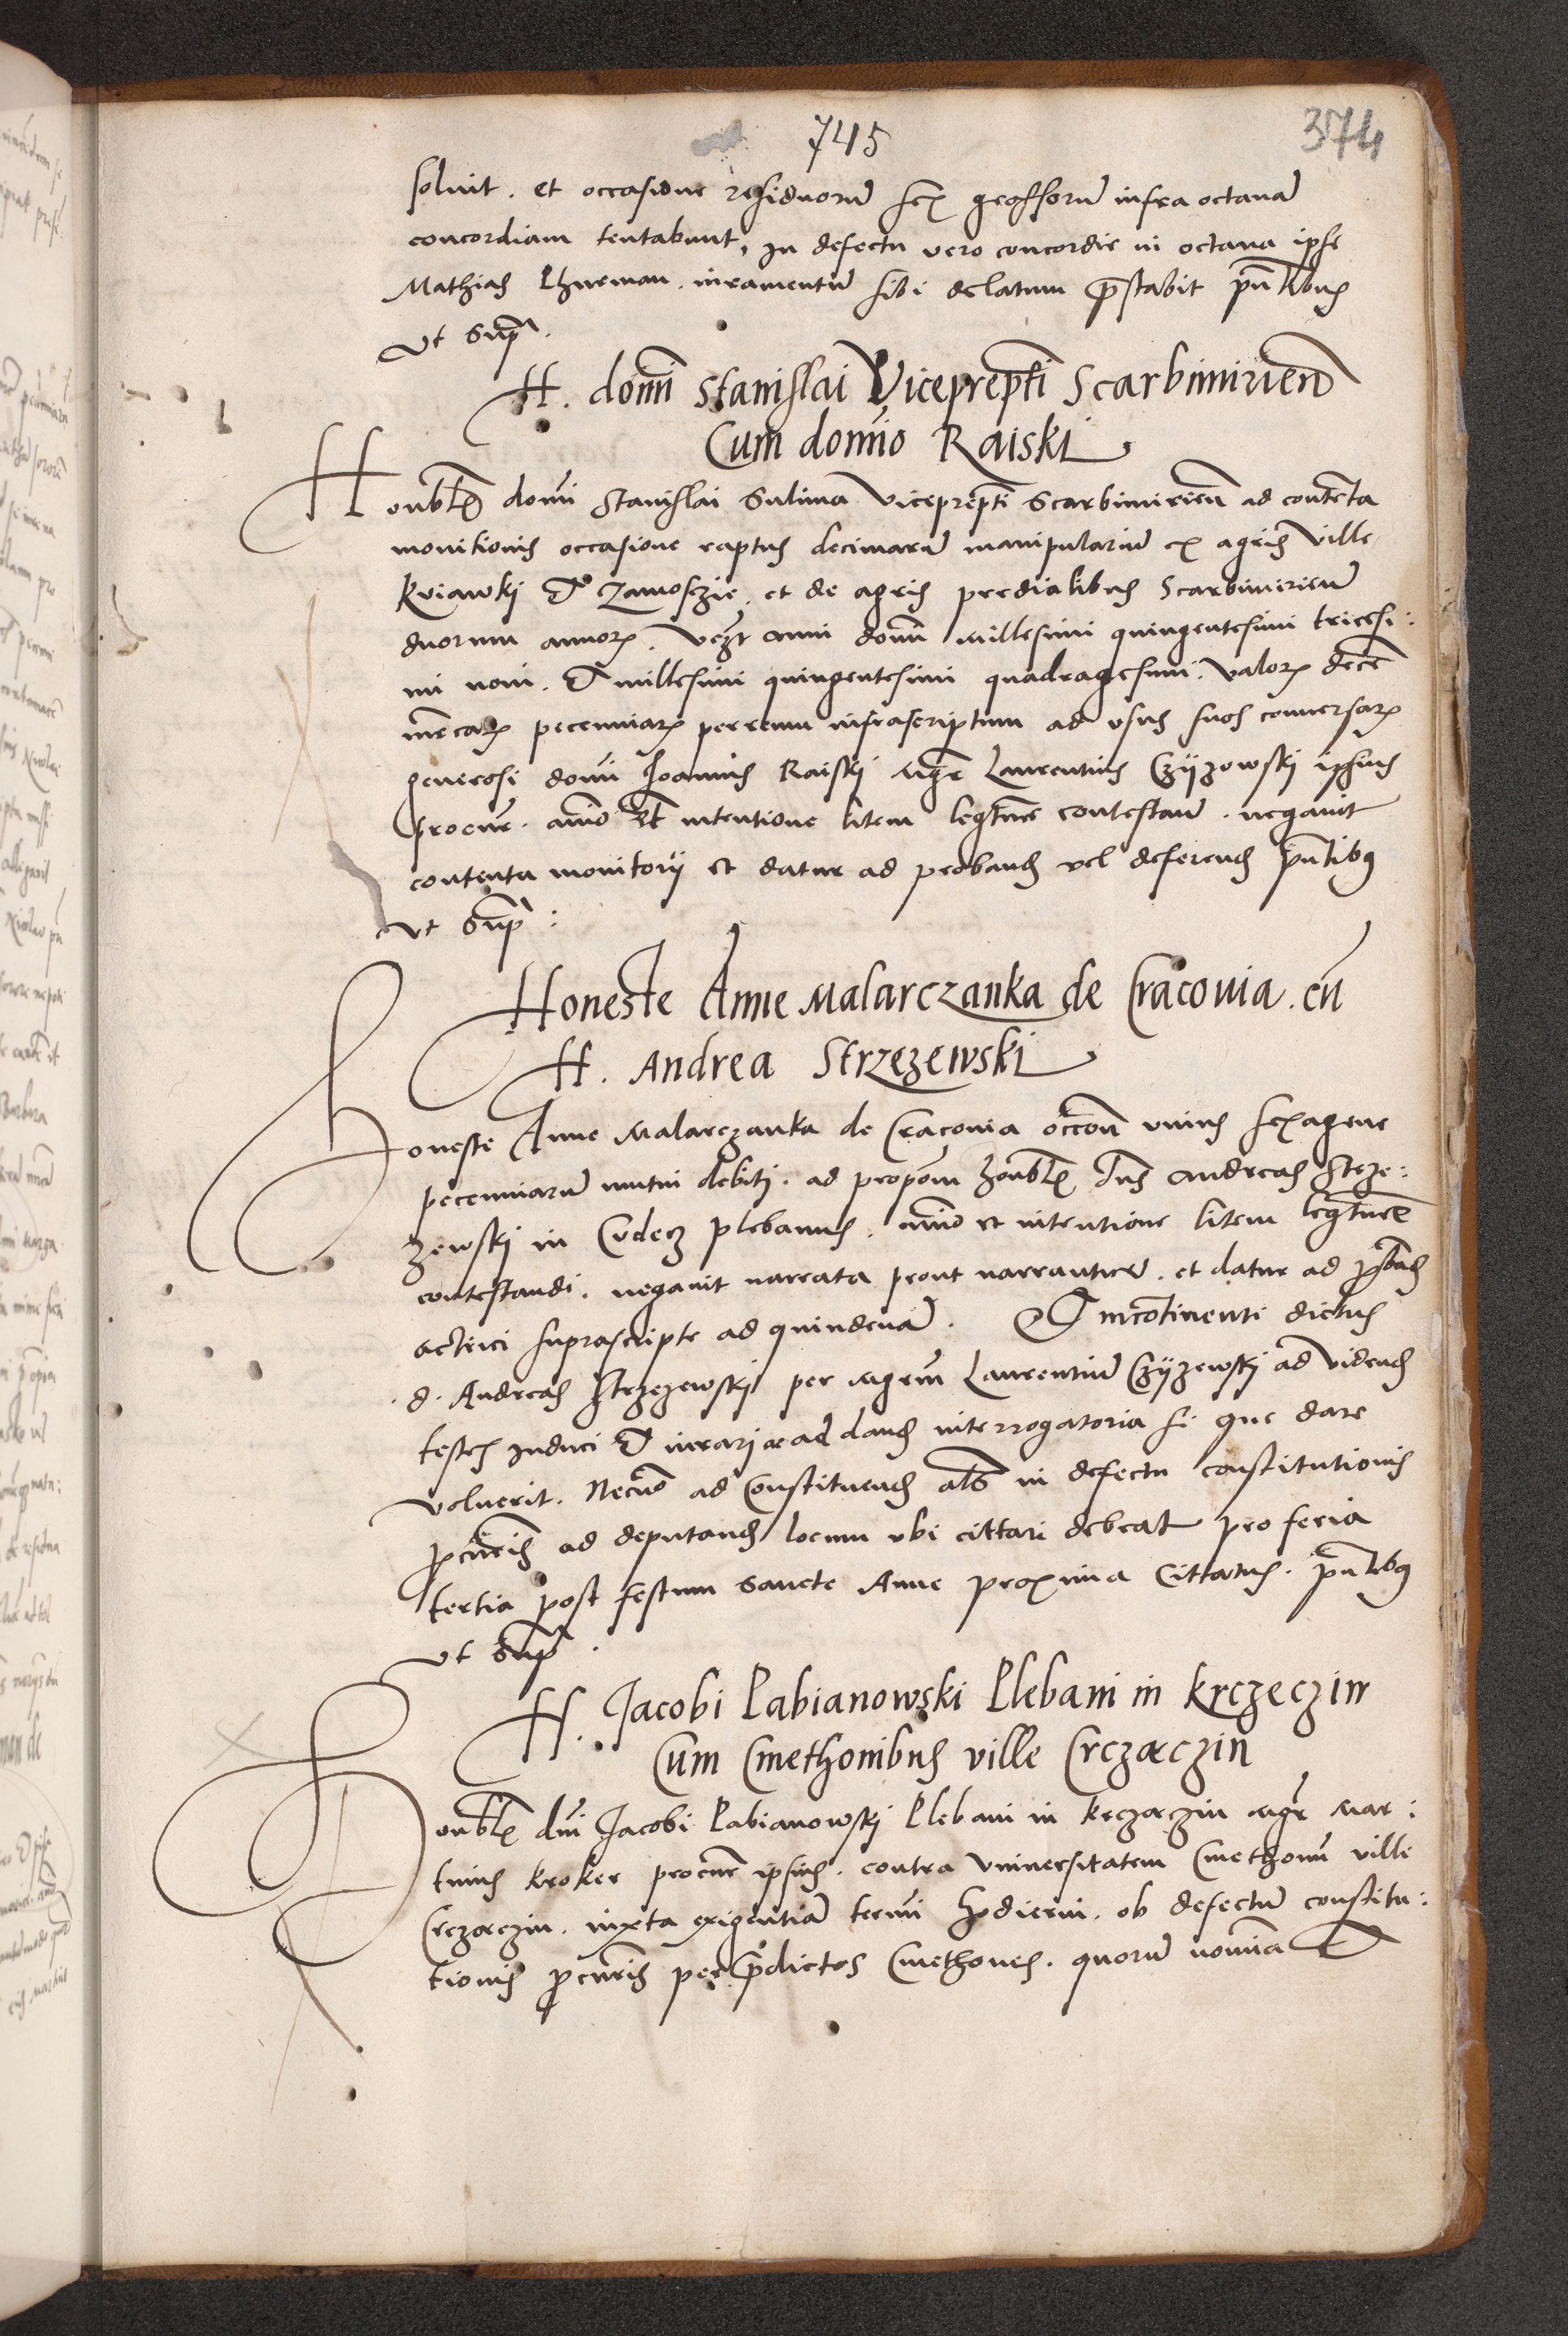 745
374
soluit. et occasione residuorū sex grossorū infra octauā
concordiam tentabunt, In defectu vero concordie in octaua ipse
Mathias Thurman. iuramentū sibi delatum p̄stabit pn̄tibus
vt sup̄.
H. domī Stanislai Viceprep̄ti Scarbimirień
Cum domīo Raiski
Honbłis domī Stanislai Sulima viceprep̄ti Scarbimirień ad contēta
monitionis occasione raptus decimarū manipulariū ex agris ville
et de agris predialibus Scarbimirień
duorum annoꝝ. vczt anni domī millesimi quingentesimi tricesi:
mi noni. & millesimi quingentesimi quadragesimi. valoꝝ decē
mrcaꝝ pecuniaꝝ per reum infrascriptum ad vsus suos conuersaꝝ
generosi domī Joannis Raiski mgr̄ Laurentius Czyżowski ipsius
procur̄. anīo et intentione litem legtīme contestań. negauit
contenta monitorij et datur ad proband vel deferend pn̄tibꝯ
vt sup̄:
Honeste Anne Malarczanka de Cracouia. cū
H. Andrea Strzezewski
Honeste Anne Malarczanka de Cracouia occōn vnius sexagene
pecuniarū mutui debiti. ad propōm honbłis dn̄s Andreas Strze:
zewski in Cudecz plebanus. anīo et intentione litem legtīme
contestandi. negauit narrata prout narrantur. et datur ad proband
actrici suprascripte ad quindenā. Et incōtinenti dictus
d. Andreas Strzezewski per mgrm̄ Laurentiū Czyżewski ad vidend
testes induci & iurari ac ad dand interrogatoria si que dare
voluerit. Necnō ad constituend als̄ in defectu constitutionis
procuris̄ ad deputand locum vbi cittari debeat pro feria
tertia post festum sancte Anne proxima cittatus. pn̄tibꝯ
vt sup̄.
H. Jacobi Pabianowski Plebani in Krczeczin
Cum Cmethonibus ville Crczæczin
Honbłis dn̄i Jacobi Pabianowski Plebani in Krczæczin mgr̄ Mar:
tinus Kroker procur̄ ipsius. contra vniuersitatem Cmethonū ville
Crczæczin. iuxta exigentiā termī hodierni. ob defectū constitu:
tionis procuris̄ per p̄dictos Cmethones. quorū nomīa &